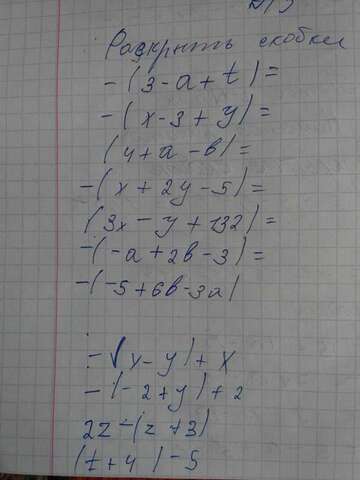 Раскрыть скобки
-(3-a+t)=
-(x-3+y)=
(4+a-b)=
-(x+2y-5)=
(3x-y+132)=
-(-a+2b-3)=
-(-5+6b-3a)
-(x-y)+x
-(-2+y)+2
2z-(z+3)
(t+4)-5